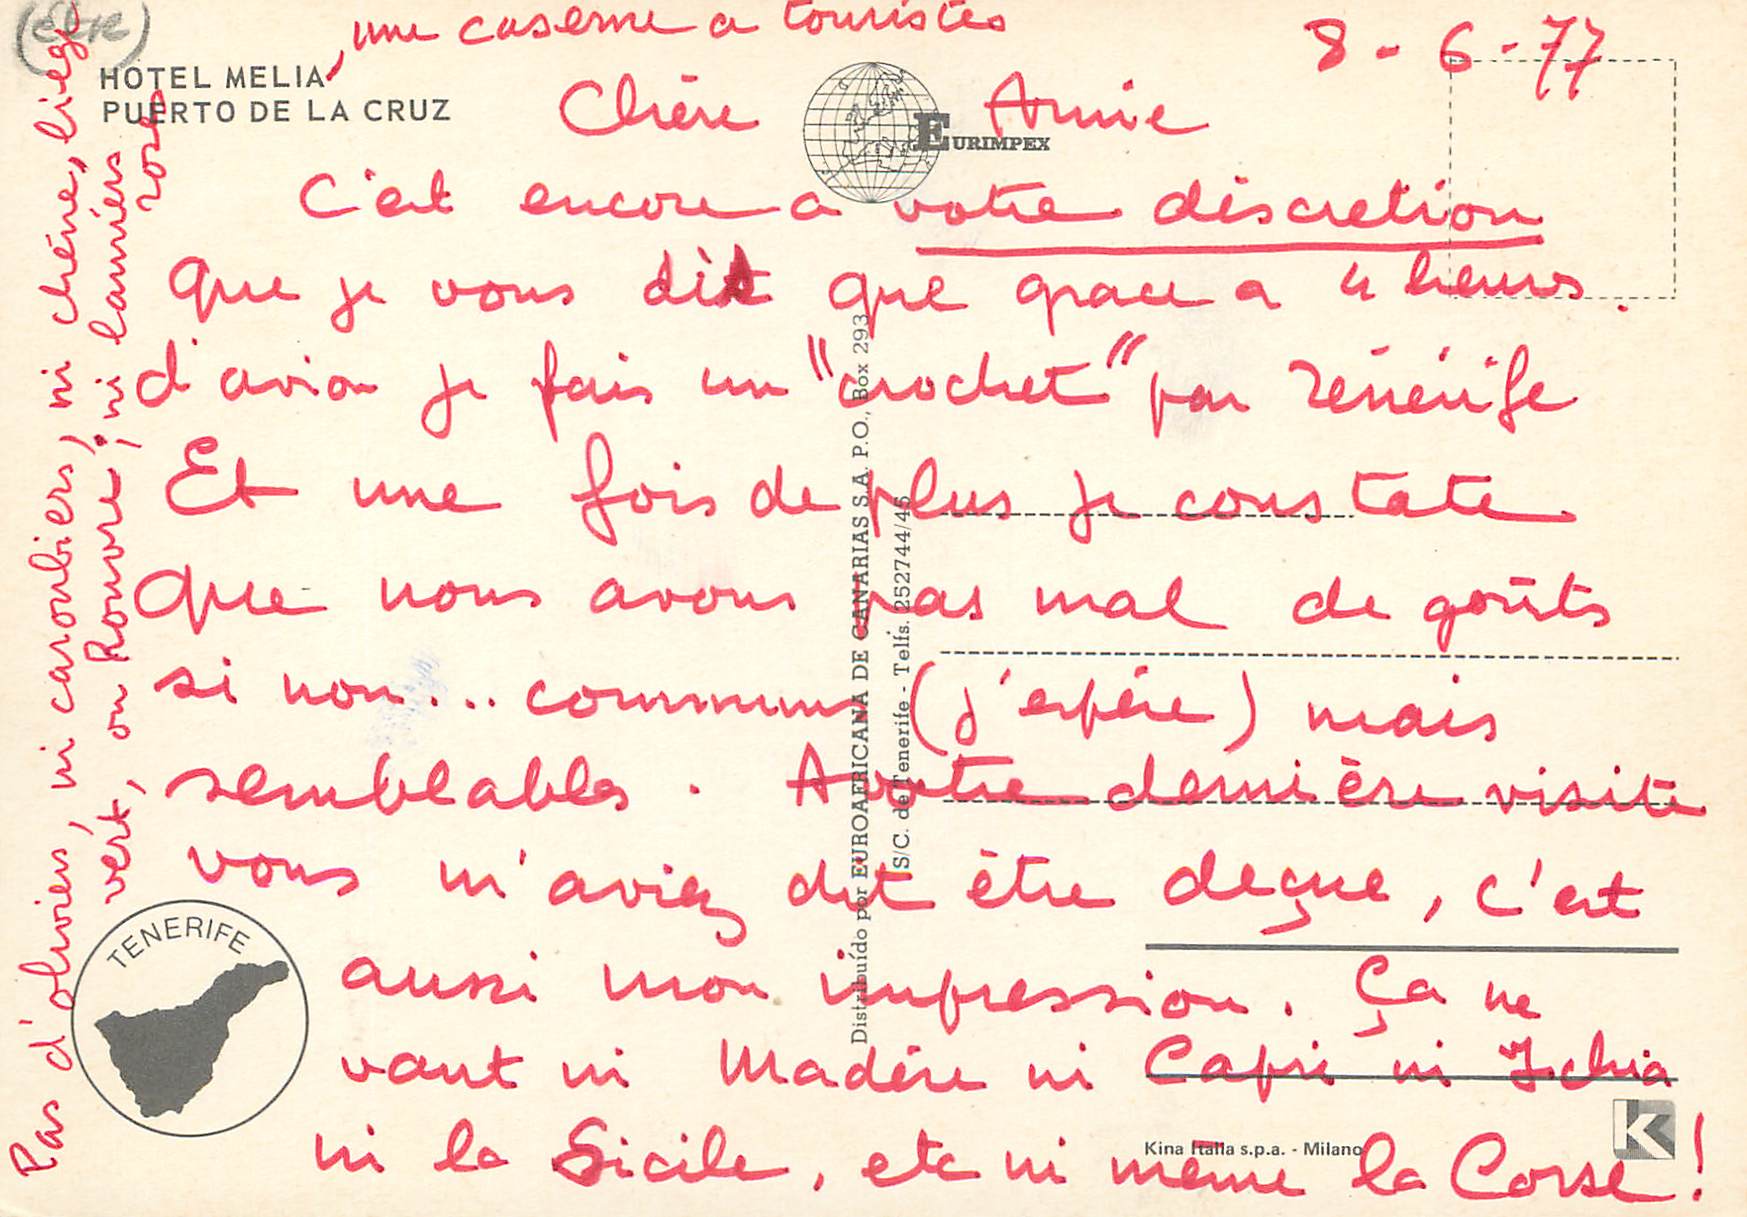 (ELR)
, une caserne a touristes
8-6-77
HOTEL MELIA
PUERTO DE LA CRUZ
Chère Annie
EURIMPEX
C'est encore a votre discretion
que je vous dit que grace a 4 heures.
d'avion je fais un "crochet" par Ténérife
Et une fois de plus je constate
que nous avons pas mal de goûts
si non... communs (j'espére) mais
semblables. A votre dernière visite
vous m'aviez dit être deçue, c'est
aussi mon impression. Ça ne
vaut ni Madère ni Capri ni Ischia
ni la Sicile, etc ni même la Corse!
Pas d'oliviers, ni caroubiers, ni chêne, liege
vert, ou Rouvre; ni lauriers
rose
Distribuído por EUROAFRICANA DE CANARIAS S.A. P.O., Box 293
S/C. de Tenerife - Telfs. 252744/45
TENERIFE
Kina Italia s.p.a. - Milano
K